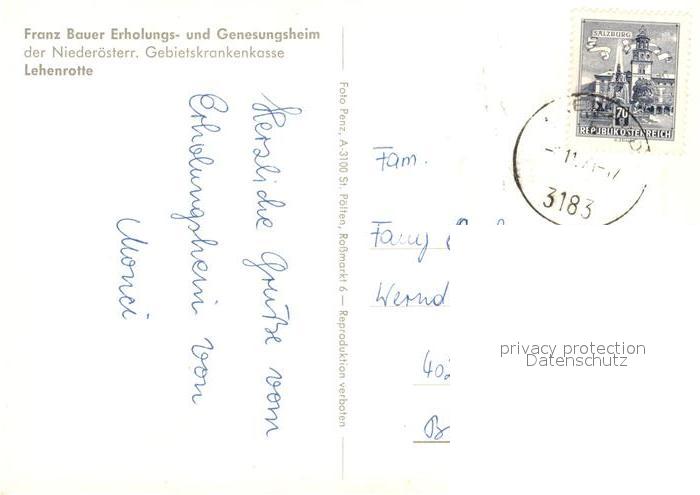 Franz Bauer Erholungs- und Genesungsheim
der Niederösterr. Gebietskrankenkasse
Lehenrotte
Herzliche Grüße vom
Erholungsheim von
Foto Penz, A-3100 St. Pölten, Roßmarkt 6 — Reproduktion verboten
SALZBURG
70
REPUBLIK ÖSTERREICH
3183
Fam.
Wernd
privacy protection
Datenschutz